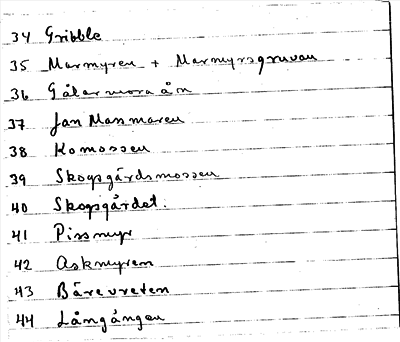 34 Gribble
35 Marmyren + Marmyrsgruvan
36 Gålarmoraån
37 Jan Masmaren
38 Komossen
39 Skogsgårdsmossen
40 Skogsgårdet.
41 Pissmyr
42 Askmyren
43 Bärevreten
44 Långängen